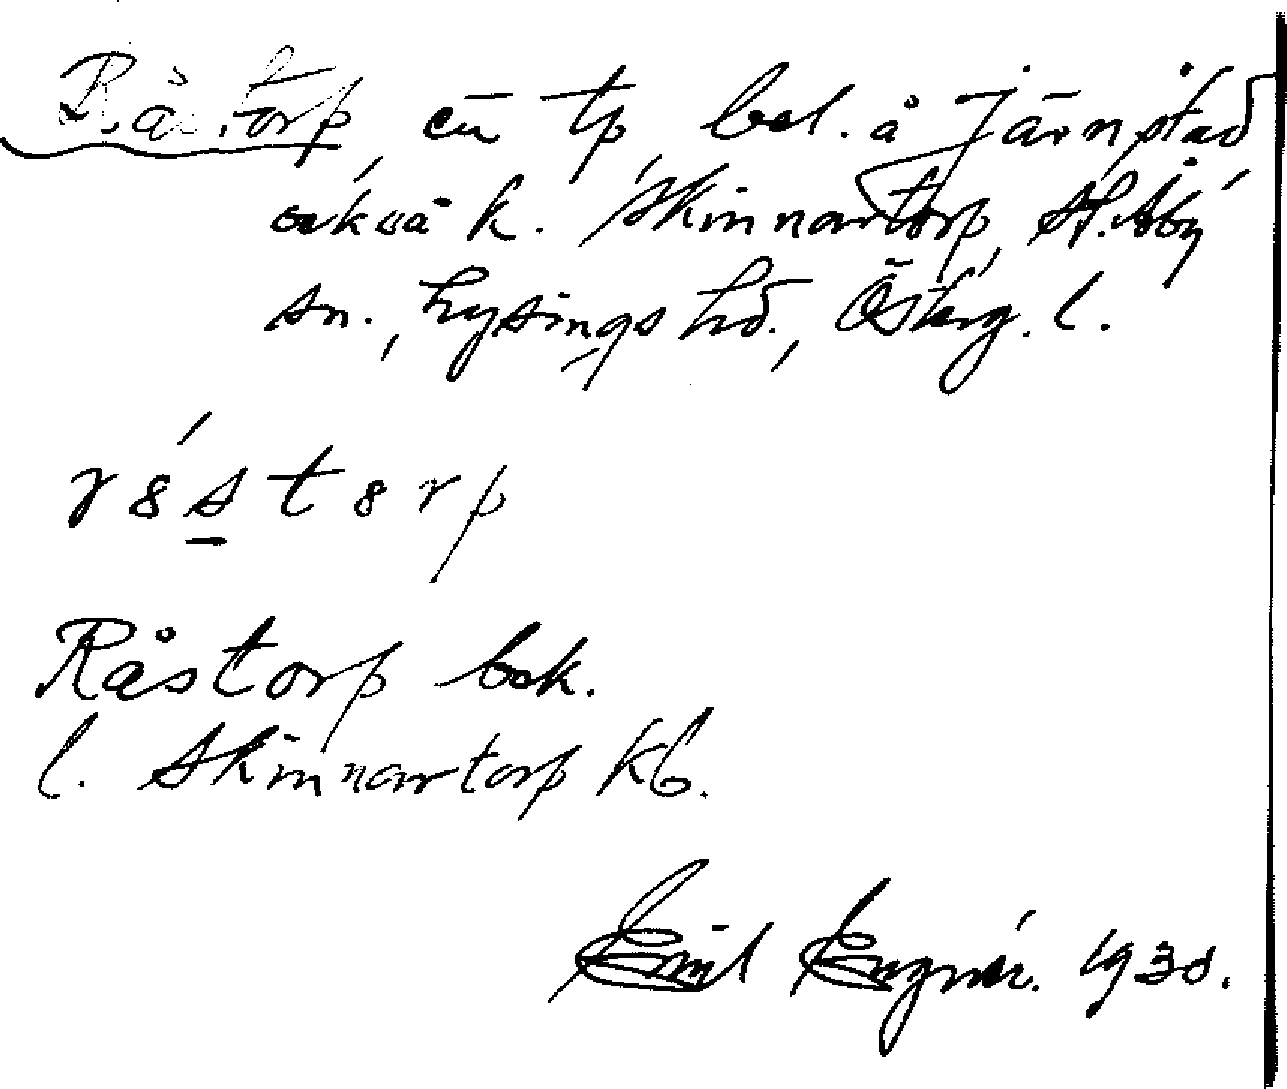 Råstorp, en tp, bel. å Järnstad
också k. Skinnartorp, St. Åby
sn., Lysings hd., Östg. l.
r 8 s t 8 r p
Råstorp bok.
l. Skinnartorp kb.
Emil 1930.